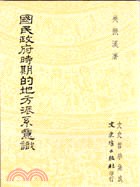 吳振漢著
國民政府時期的地方派系意識
文史哲學集成
文史哲出版社印行